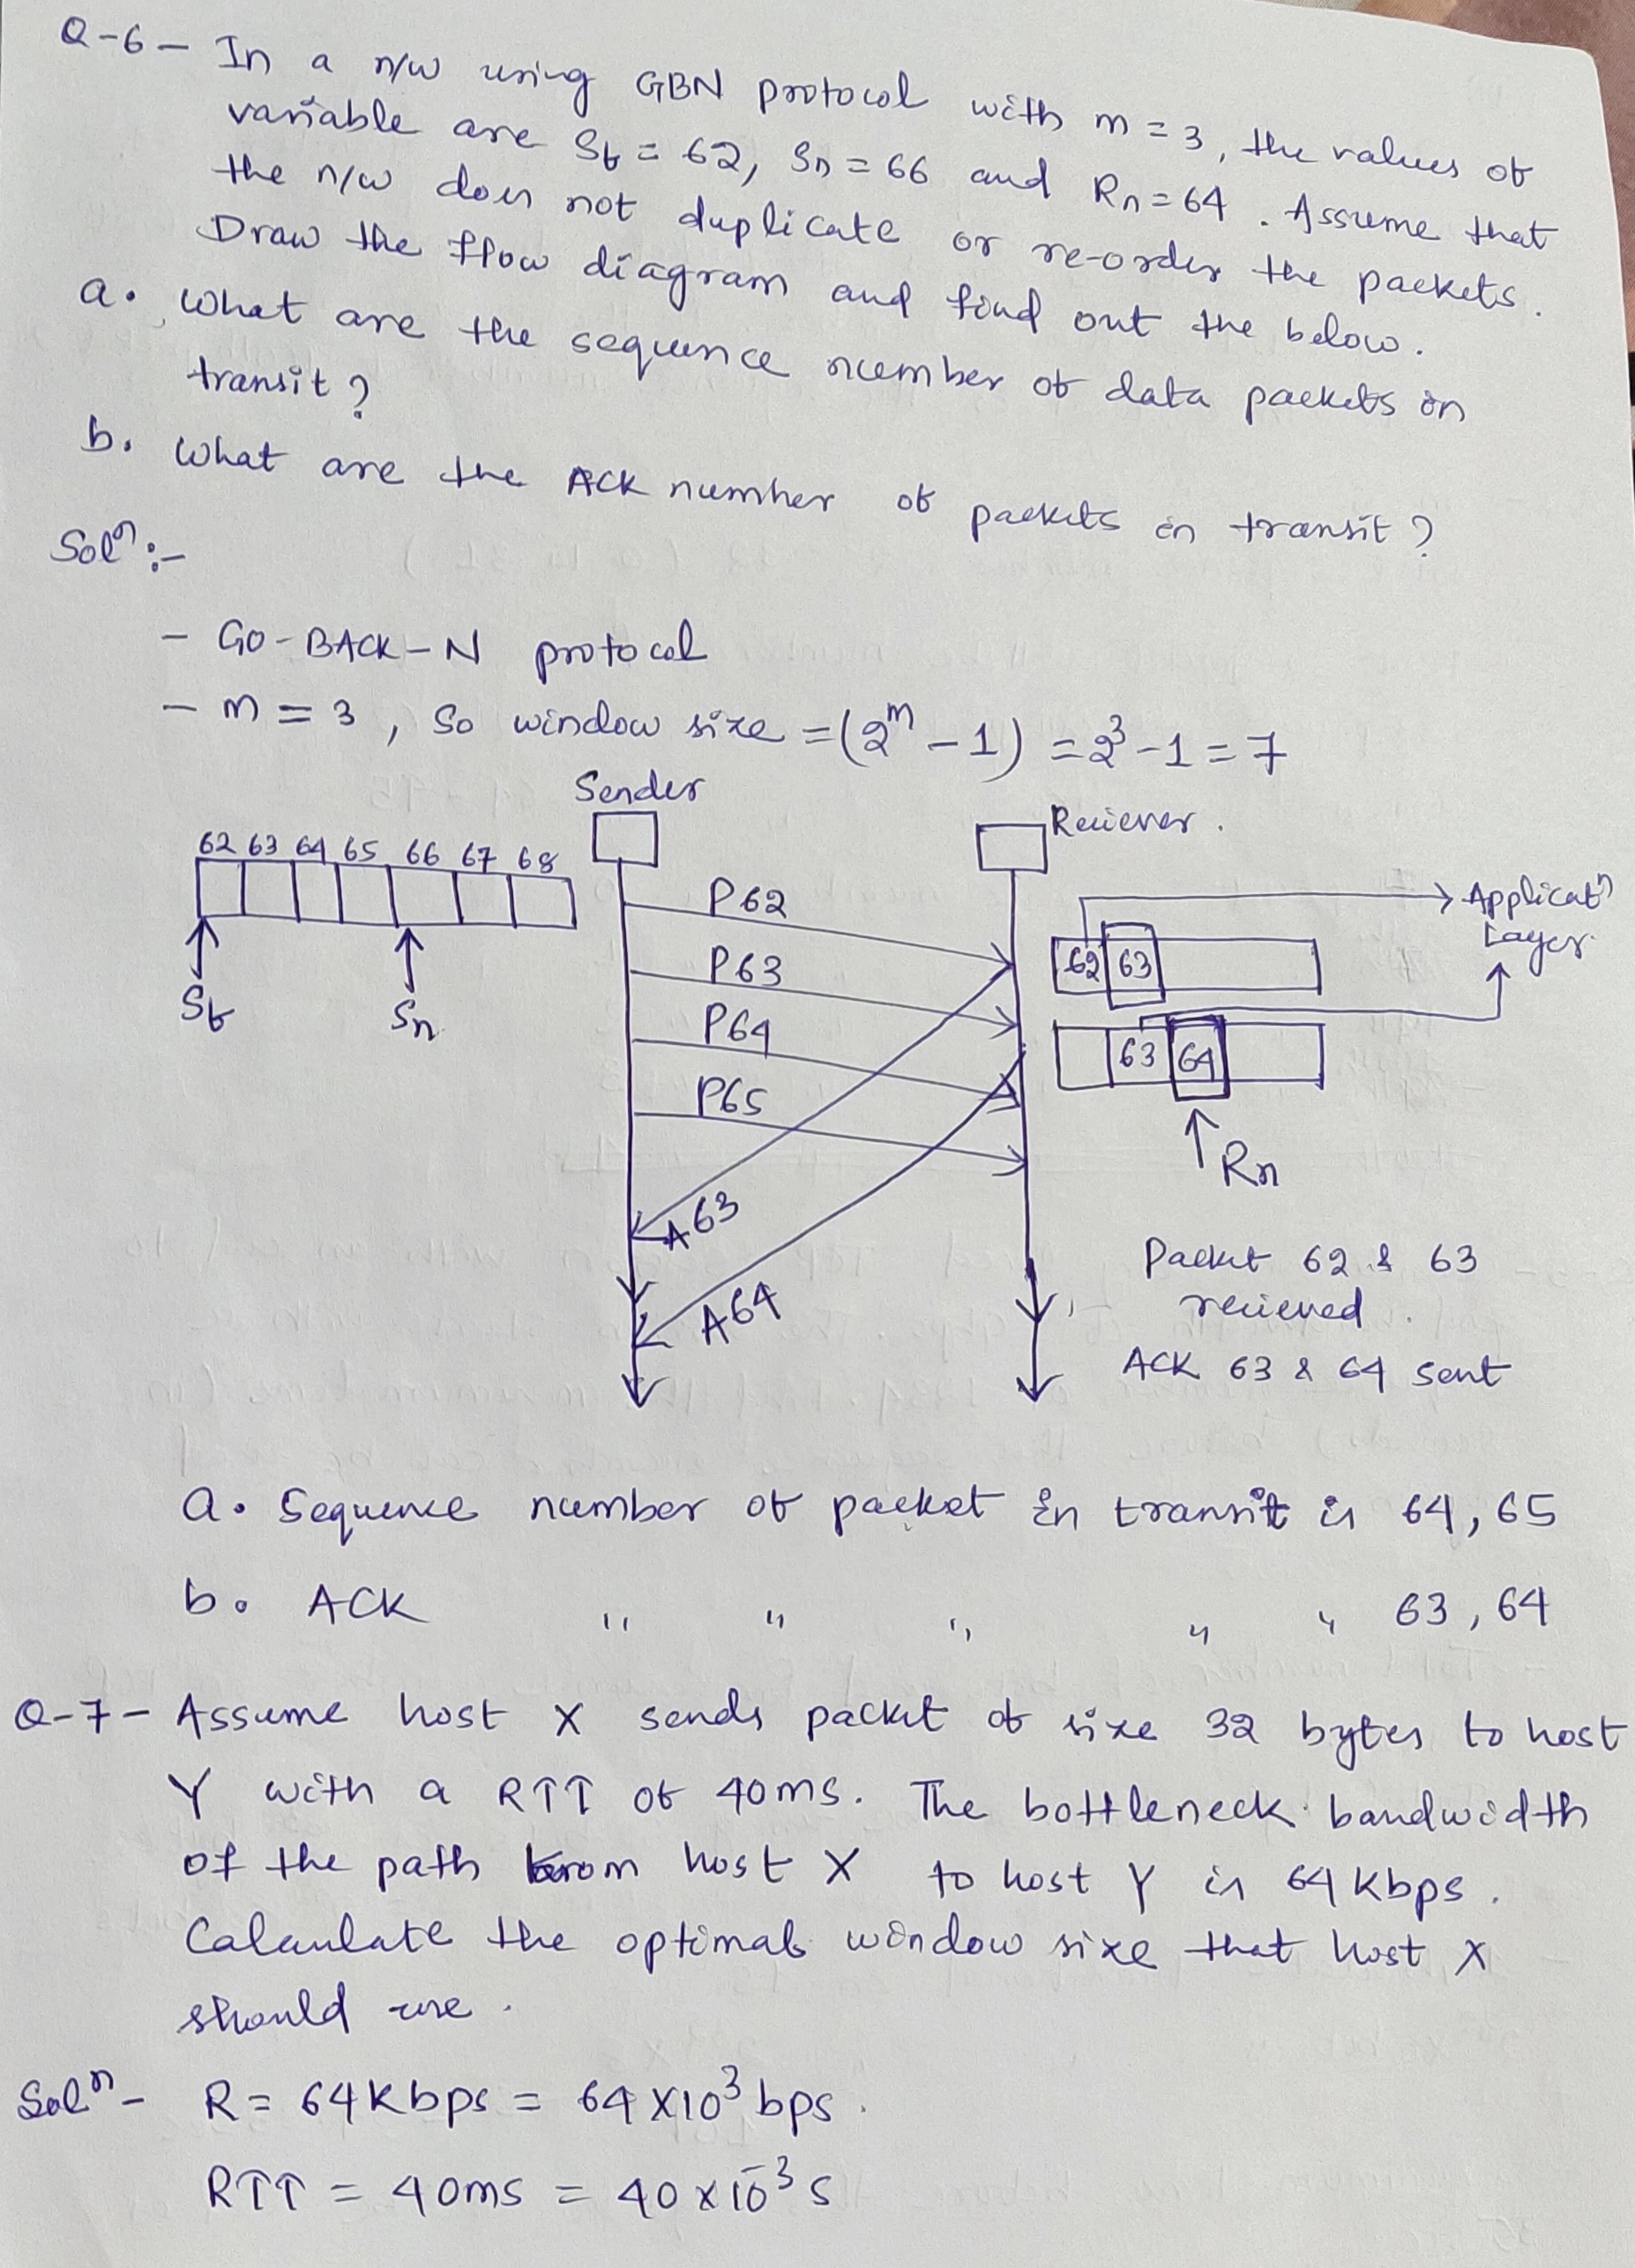 Q-6- In a n/w using GBN protocol with m = 3, the values of
variable are Sf = 62, Sn = 66 and Rn = 64. Assume that
the n/w does not duplicate or re-order the packets.
Draw the flow diagram and find out the below.
a. What are the sequence number of data packets in
transit?
b. What are the ACK number of packets in transit?
Solⁿ:-
- GO-BACK-N protocol
- m = 3, So window size = (2^m - 1) = 2^3 - 1 = 7
Sender
Reciever.
62 63 64 65 66 67 68
Sf
Sn
P62
P63
P64
P65
A63
A64
62 63
Applicatⁿ
Layer.
63 64
Rn
Packet 62 & 63
recieved.
ACK 63 & 64 sent
a. Sequence number of packet in transit is 64, 65
b. ACK " " " " " 63, 64
Q-7- Assume host X sends packet of size 32 bytes to host
Y with a RTT of 40ms. The bottleneck bandwidth
of the path from host X to host Y is 64 kbps.
Calculate the optimal window size that host X
should use.
Solⁿ- R = 64 kbps = 64 × 10³ bps.
RTT = 40ms = 40 × 10⁻³ s